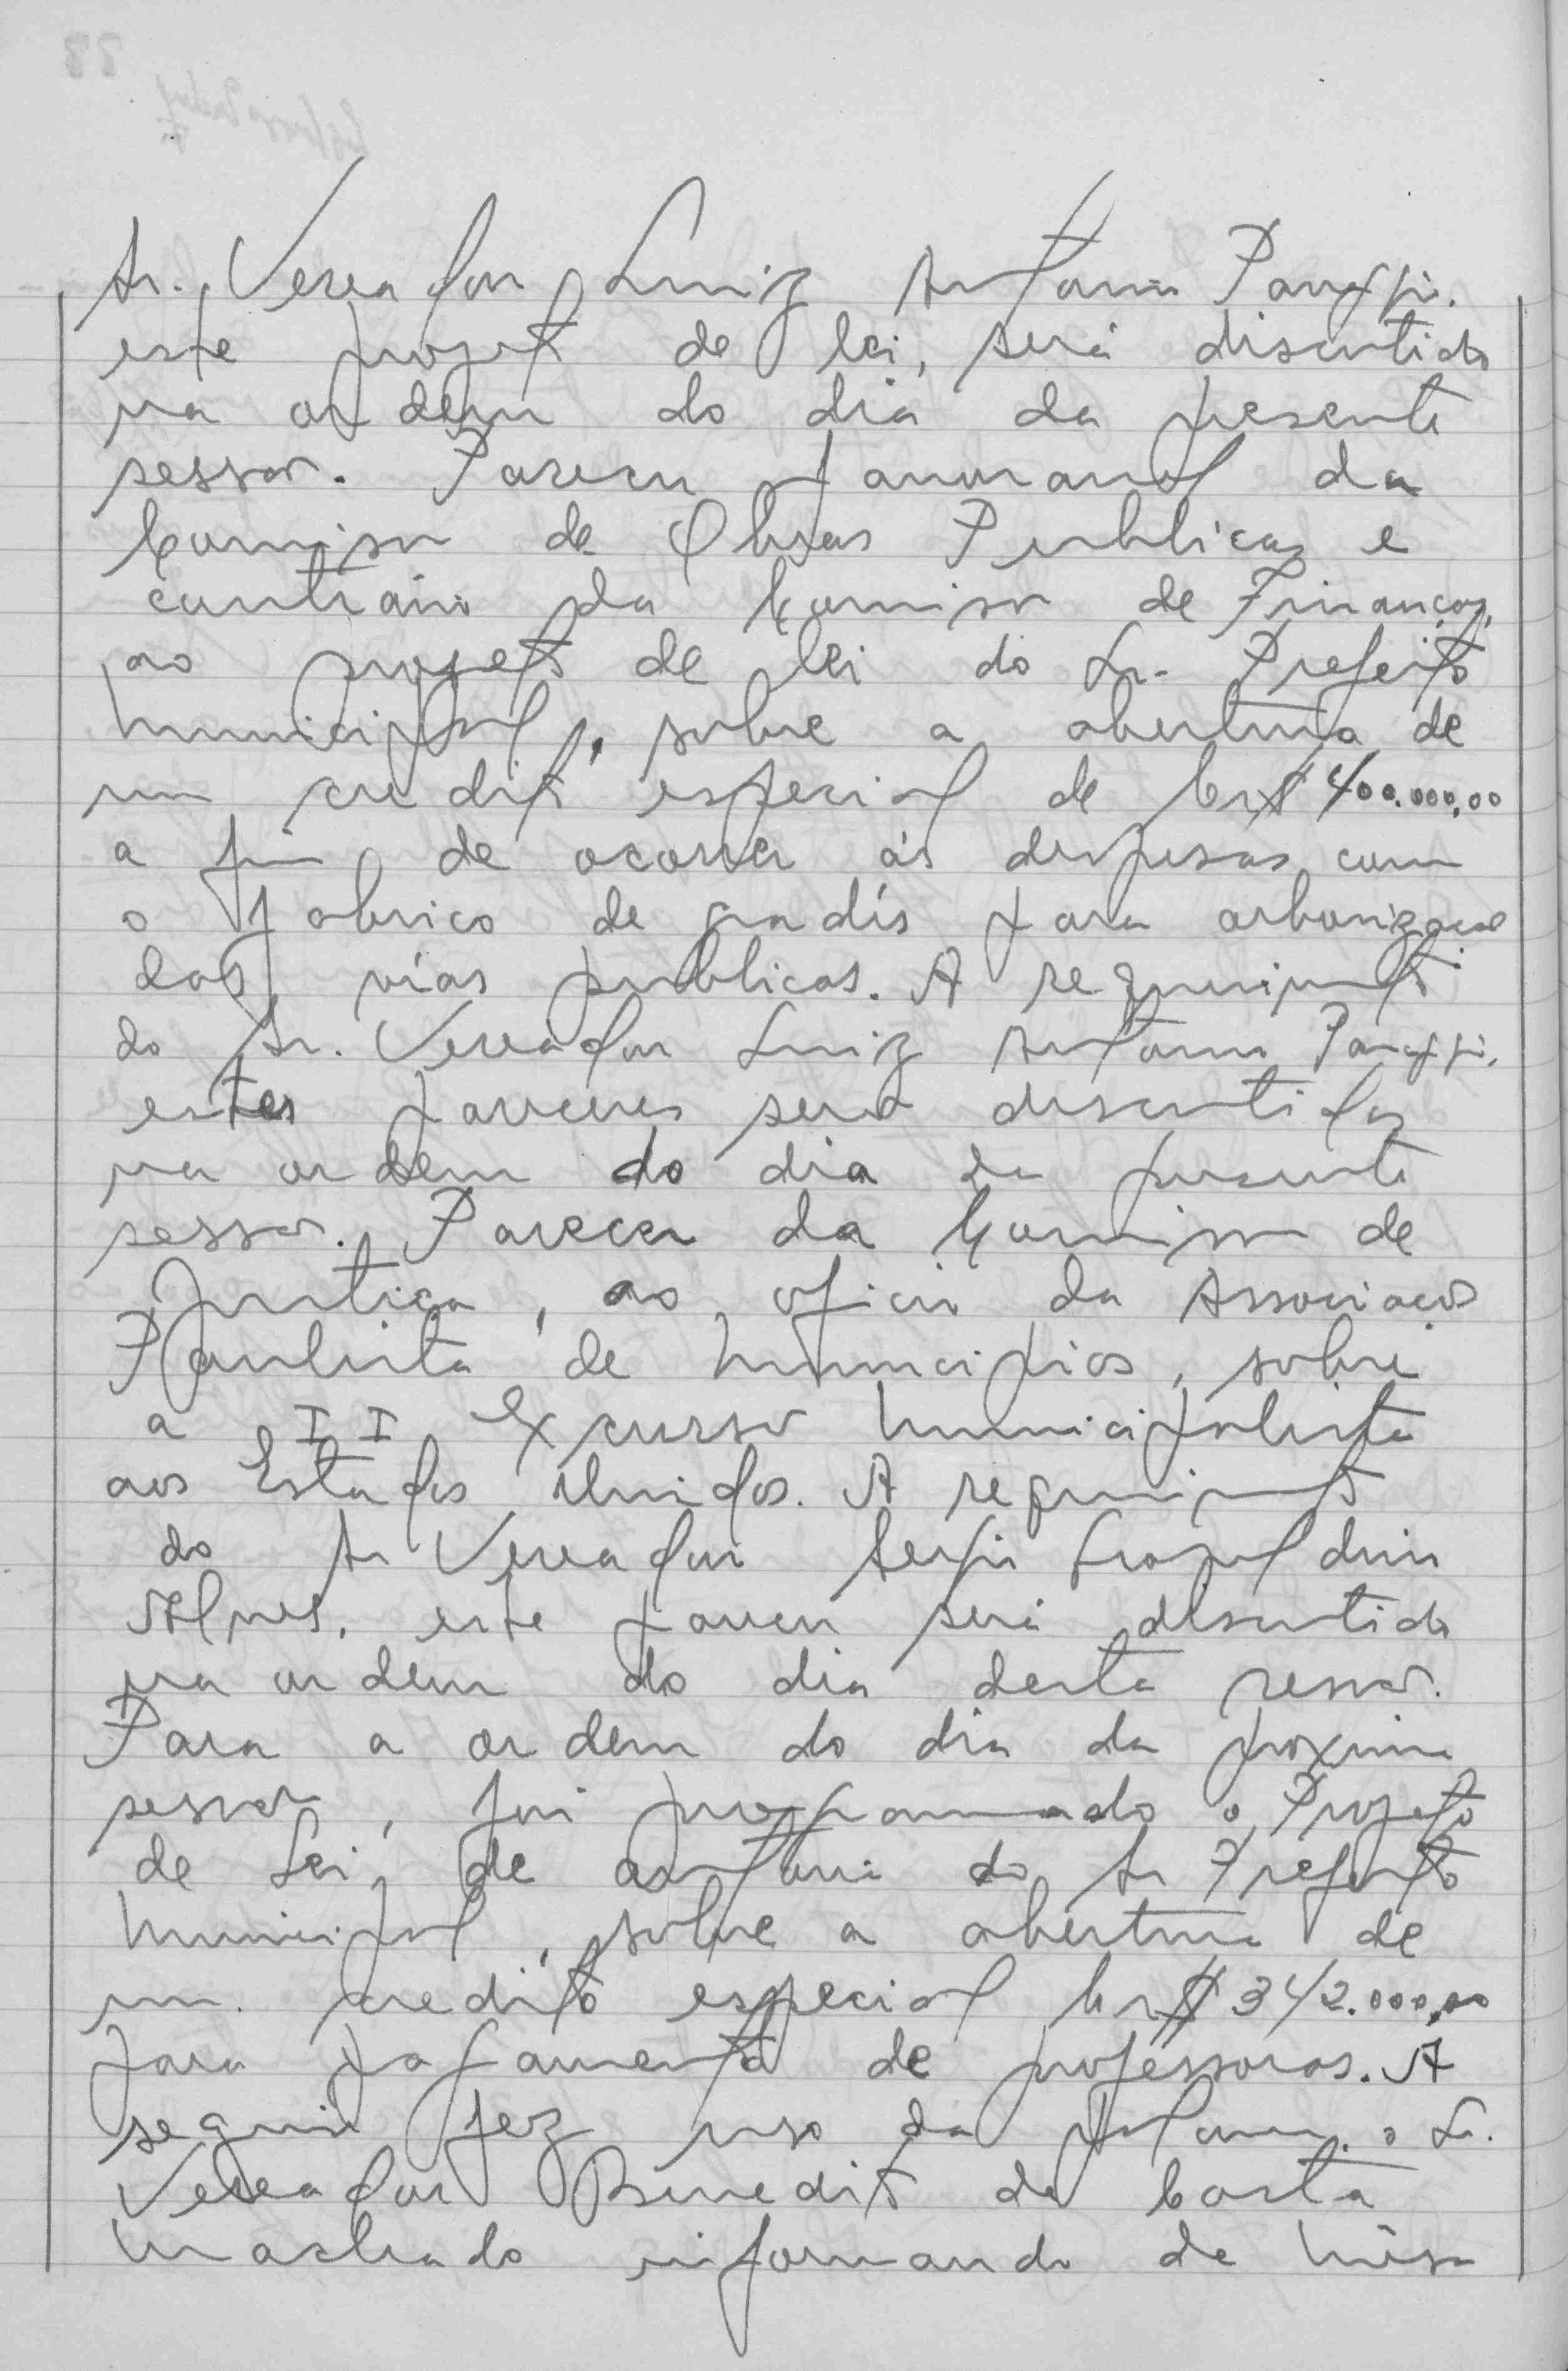 Sr. Vereador Luiz Antonio Panuppi.
este projeto de lei, será discutido
na ordem do dia da presente
sessão. Parecer favoravel da
Comissão de Obras Publicas e
contrário da Comissão de Finanças,
ao projeto de lei do Sr. Prefeito
Municipal, sobre a abertura de
um credito especial de Cr$ 400.000,00
a fim de ocorrer ás despesas com
o fabrico de gradís para arborização
das vias publicas. A requerimento
do Sr. Vereador Luiz Antonio
estes pareceres serão discutidos
na ordem do dia da presente
sessão. Parecer da Comissão de
Justiça, ao oficio da Associação
Paulista de Municipios, sobre
a II Excursão Municipalista
aos Estados Unidos. A requerimento
do Sr Vereador Sergio Leopoldino
Alves, este parecer será discutido
na ordem do dia desta sessão.
Para a ordem do dia da proxima
sessão, foi programado o Projeto
de Lei, de autoria do Sr Prefeito
Municipal, sobre a abertura de
um credito especial Cr$ 342.000,00
para pagamento de professoras. A
seguir fez uso da palavra o Sr.
Vereador Benedito da Costa
Machado informando de